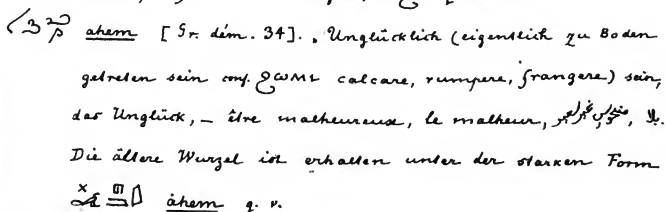 ahem [Gr. dém. 34]. Unglücklich (eigentlich zu Boden
getreten sein conf. ϨⲰⲘⲒ calcare, rumpere, frangere) sein,
das Unglück, — être malheureux, le malheur, بلا.
Die ältere Wurzel ist erhalten unter der starken Form
åhem q. v.